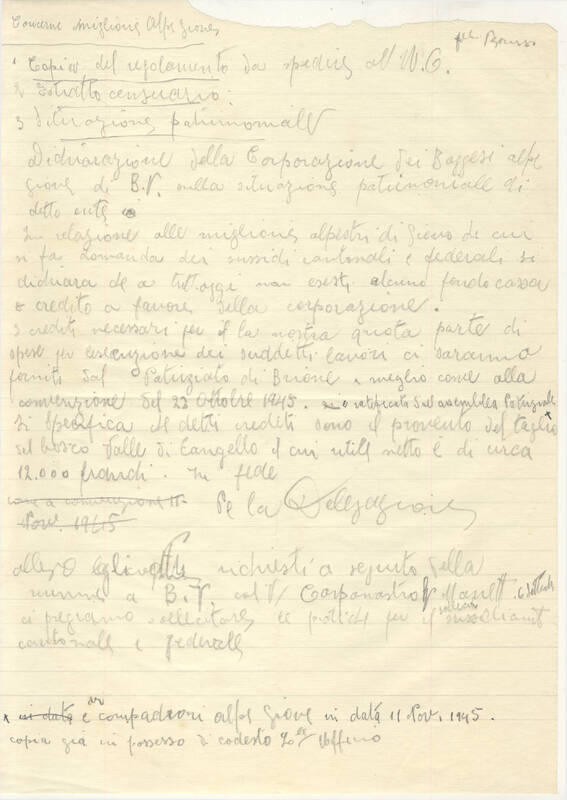 Concerne migliorie Alpe Giove
per Bonus
1 Copia del regolamento da spedire all'U.C.
2 Estratto censuario.
3 Situazione patrimoniale
Dichiarazione della Corporazione dei Boggesi alpe
Giove di B.V. sulla situazione patrimoniale di
detto ente
In relazione alle migliorie alpestri di Giove di cui
si fa domanda dei sussidi cantonali e federali si
dichiara che a tutt'oggi non esiste alcuno fondo cassa
o credito a favore della corporazione.
I crediti necessari per la nostra quota parte di
spese per l'esecuzione dei suddetti lavori ci saranno
forniti dal Patriziato di Brione e meglio come alla
convenzione del 23 Ottobre 1945. o ratificata dal assemblea Patriziale x
Si specifica che detti crediti sono il provento del taglio
del bosco Valle di Cangello il cui utile netto è di circa
12.000 franchi. In fede
come a convenzione 11
Nov. 1945
Pe la Delegazione
allegO richiesti a seguito della
riunione a B.V. col V/ Capomastro
ci pregiamo sollecitare le pratiche per il
cantonale e federale
x in data e compadroni alpe Giove in data 11 Nov. 1945.
copia già in possesso di codesto Ufficio